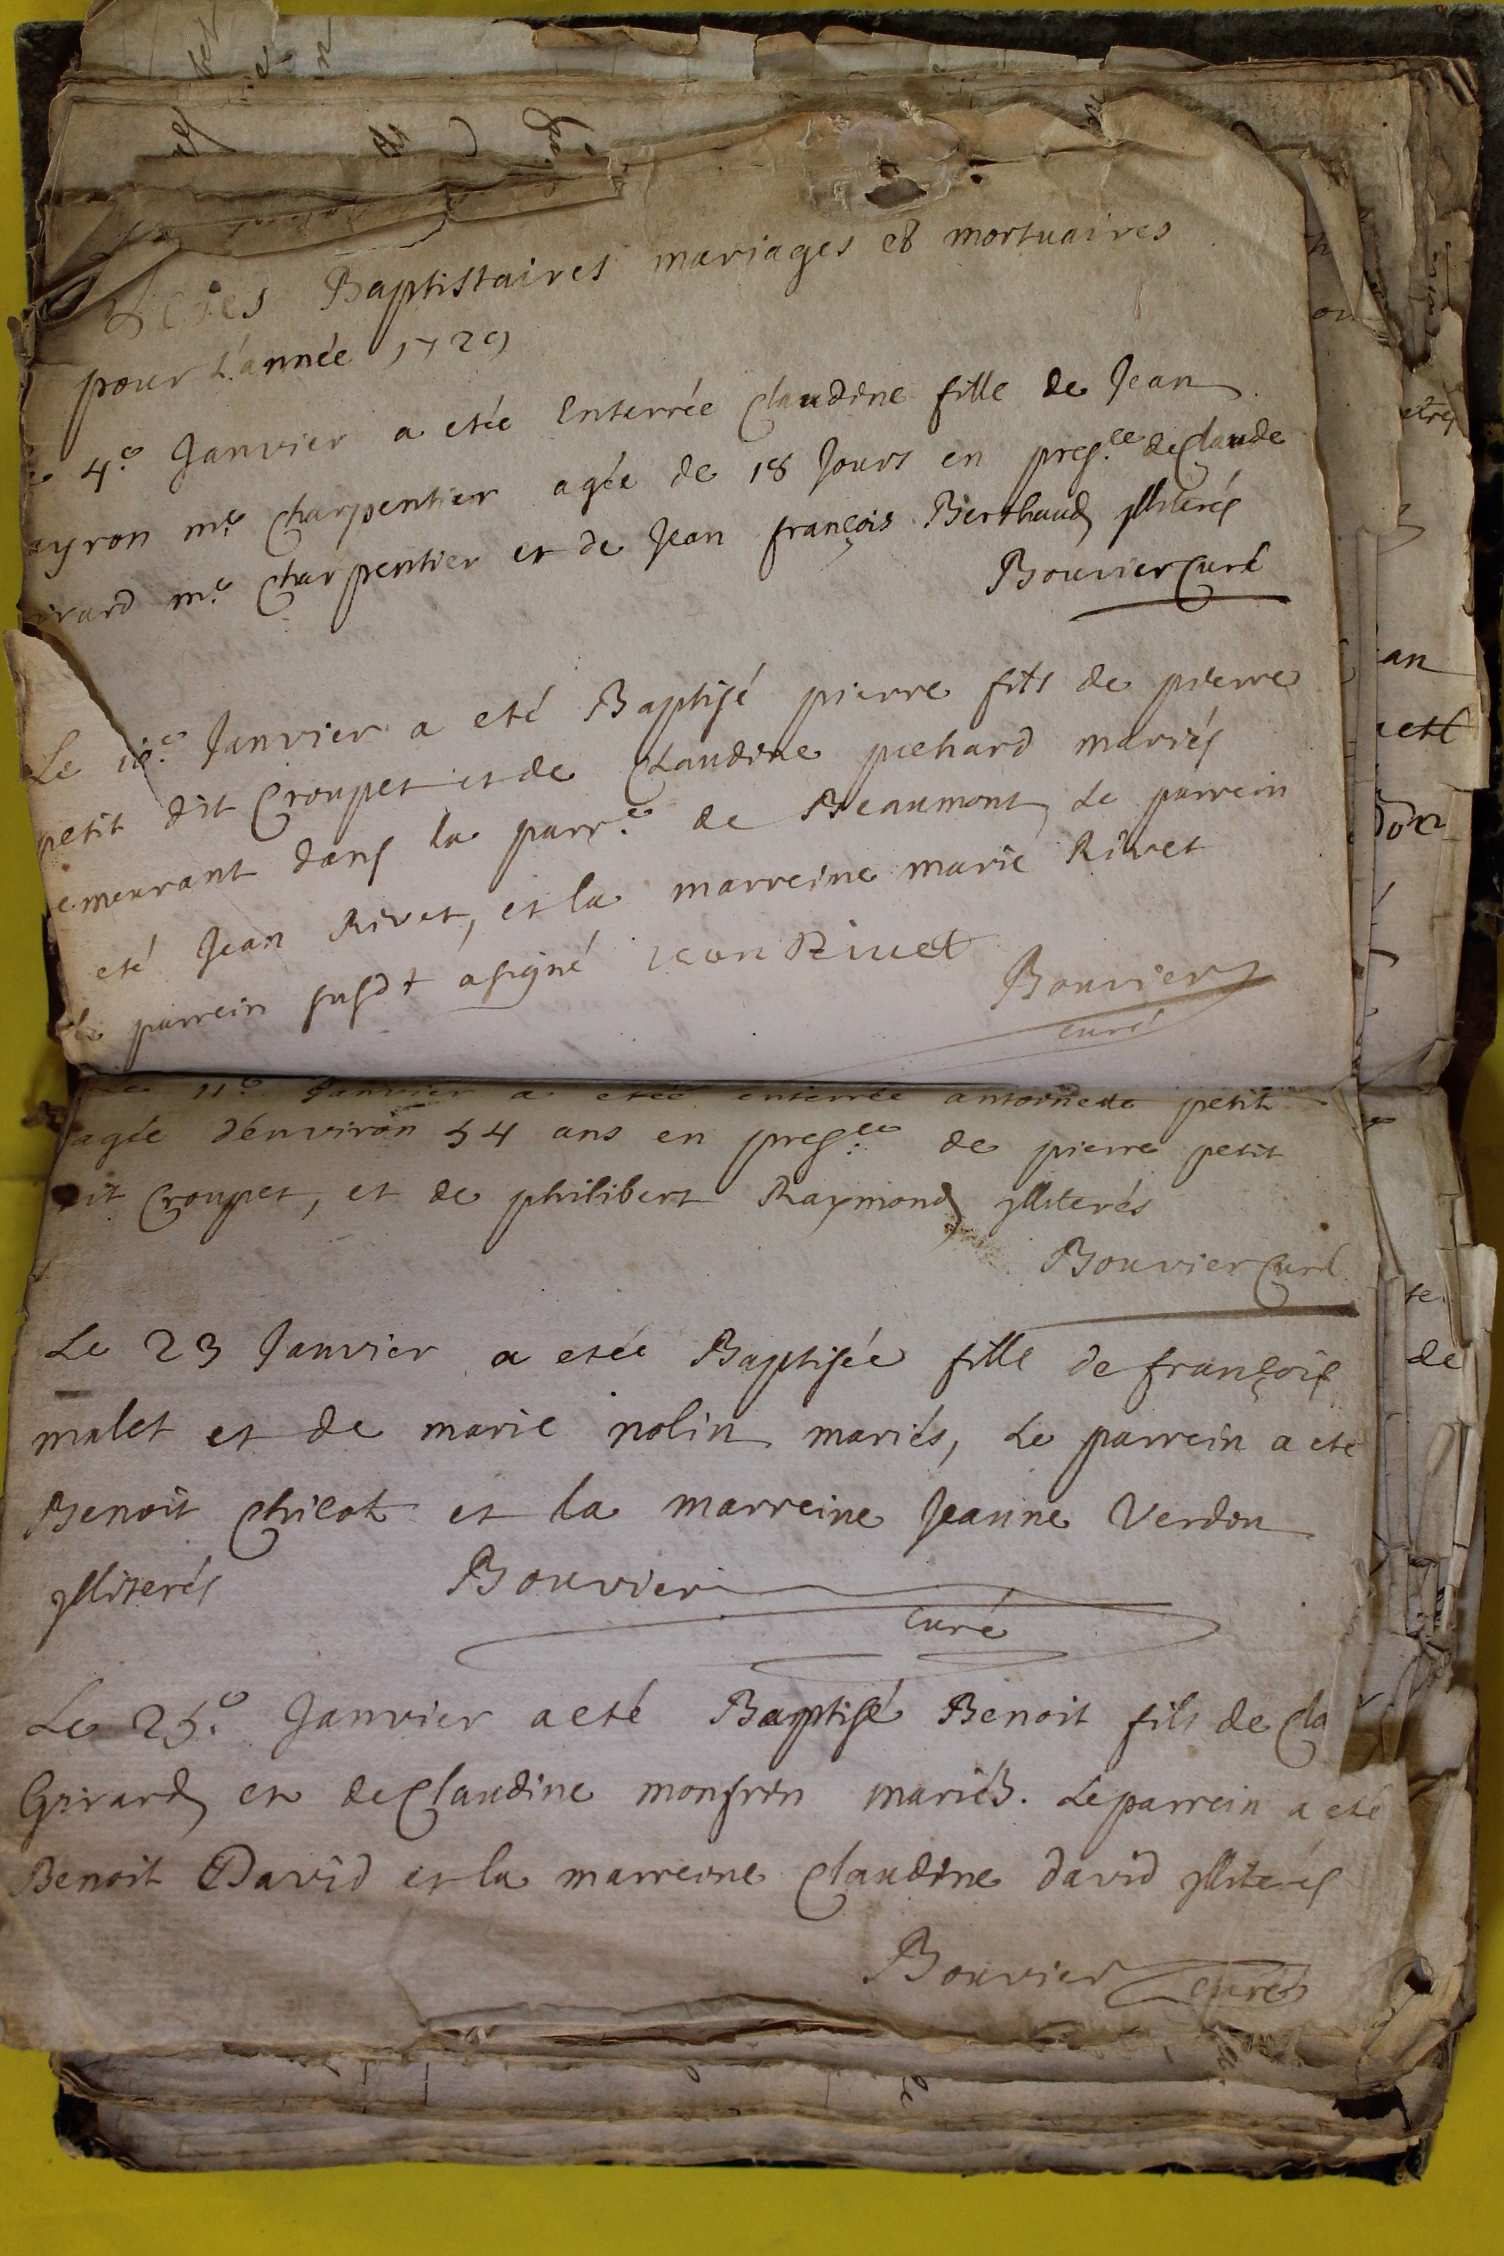 Actes Baptistaires mariages et mortuaires
pour L'année 1729
4.e Janvier a etée Enterrée Claudine fille de Jean
ayron m.e Charpentier agée de 18 Jours en pres.ce de Claude
irard m.e Charpentier et de Jean françois Berthaud jlliterés
Bouvier Curé
Le 10.e Janvier a eté Baptisé pierre fils de pierre
petit dit Croupet et de Claudine pichard mariés
emeurant dans la parr.e de Beaumont Le parrein
eté Jean Rivet, et la marreine marie Rivet
le parrein susdt a signé Jean Rivet
Bouvier
curé
Le 11.e Janvier a etée enterrée antoinette petit
agée d'environ 54 ans en pres.ce de pierre petit
it Croupet, et de philibert Raymond jlliterés
Bouvier Curé
Le 23 Janvier a etée Baptisée fille de françois
malet et de marie nolin mariés, Le parrein a eté
Benoit Chicot et la marreine Jeanne Verdon
jlliterés Bouvier
curé
Le 25.e Janvier a eté Baptisé Benoit fils de Cla
Girard et de Claudine monfrin mariés. Le parrein a eté
Benoit David et la marreine Claudine david jlliterés
Bouvier curé